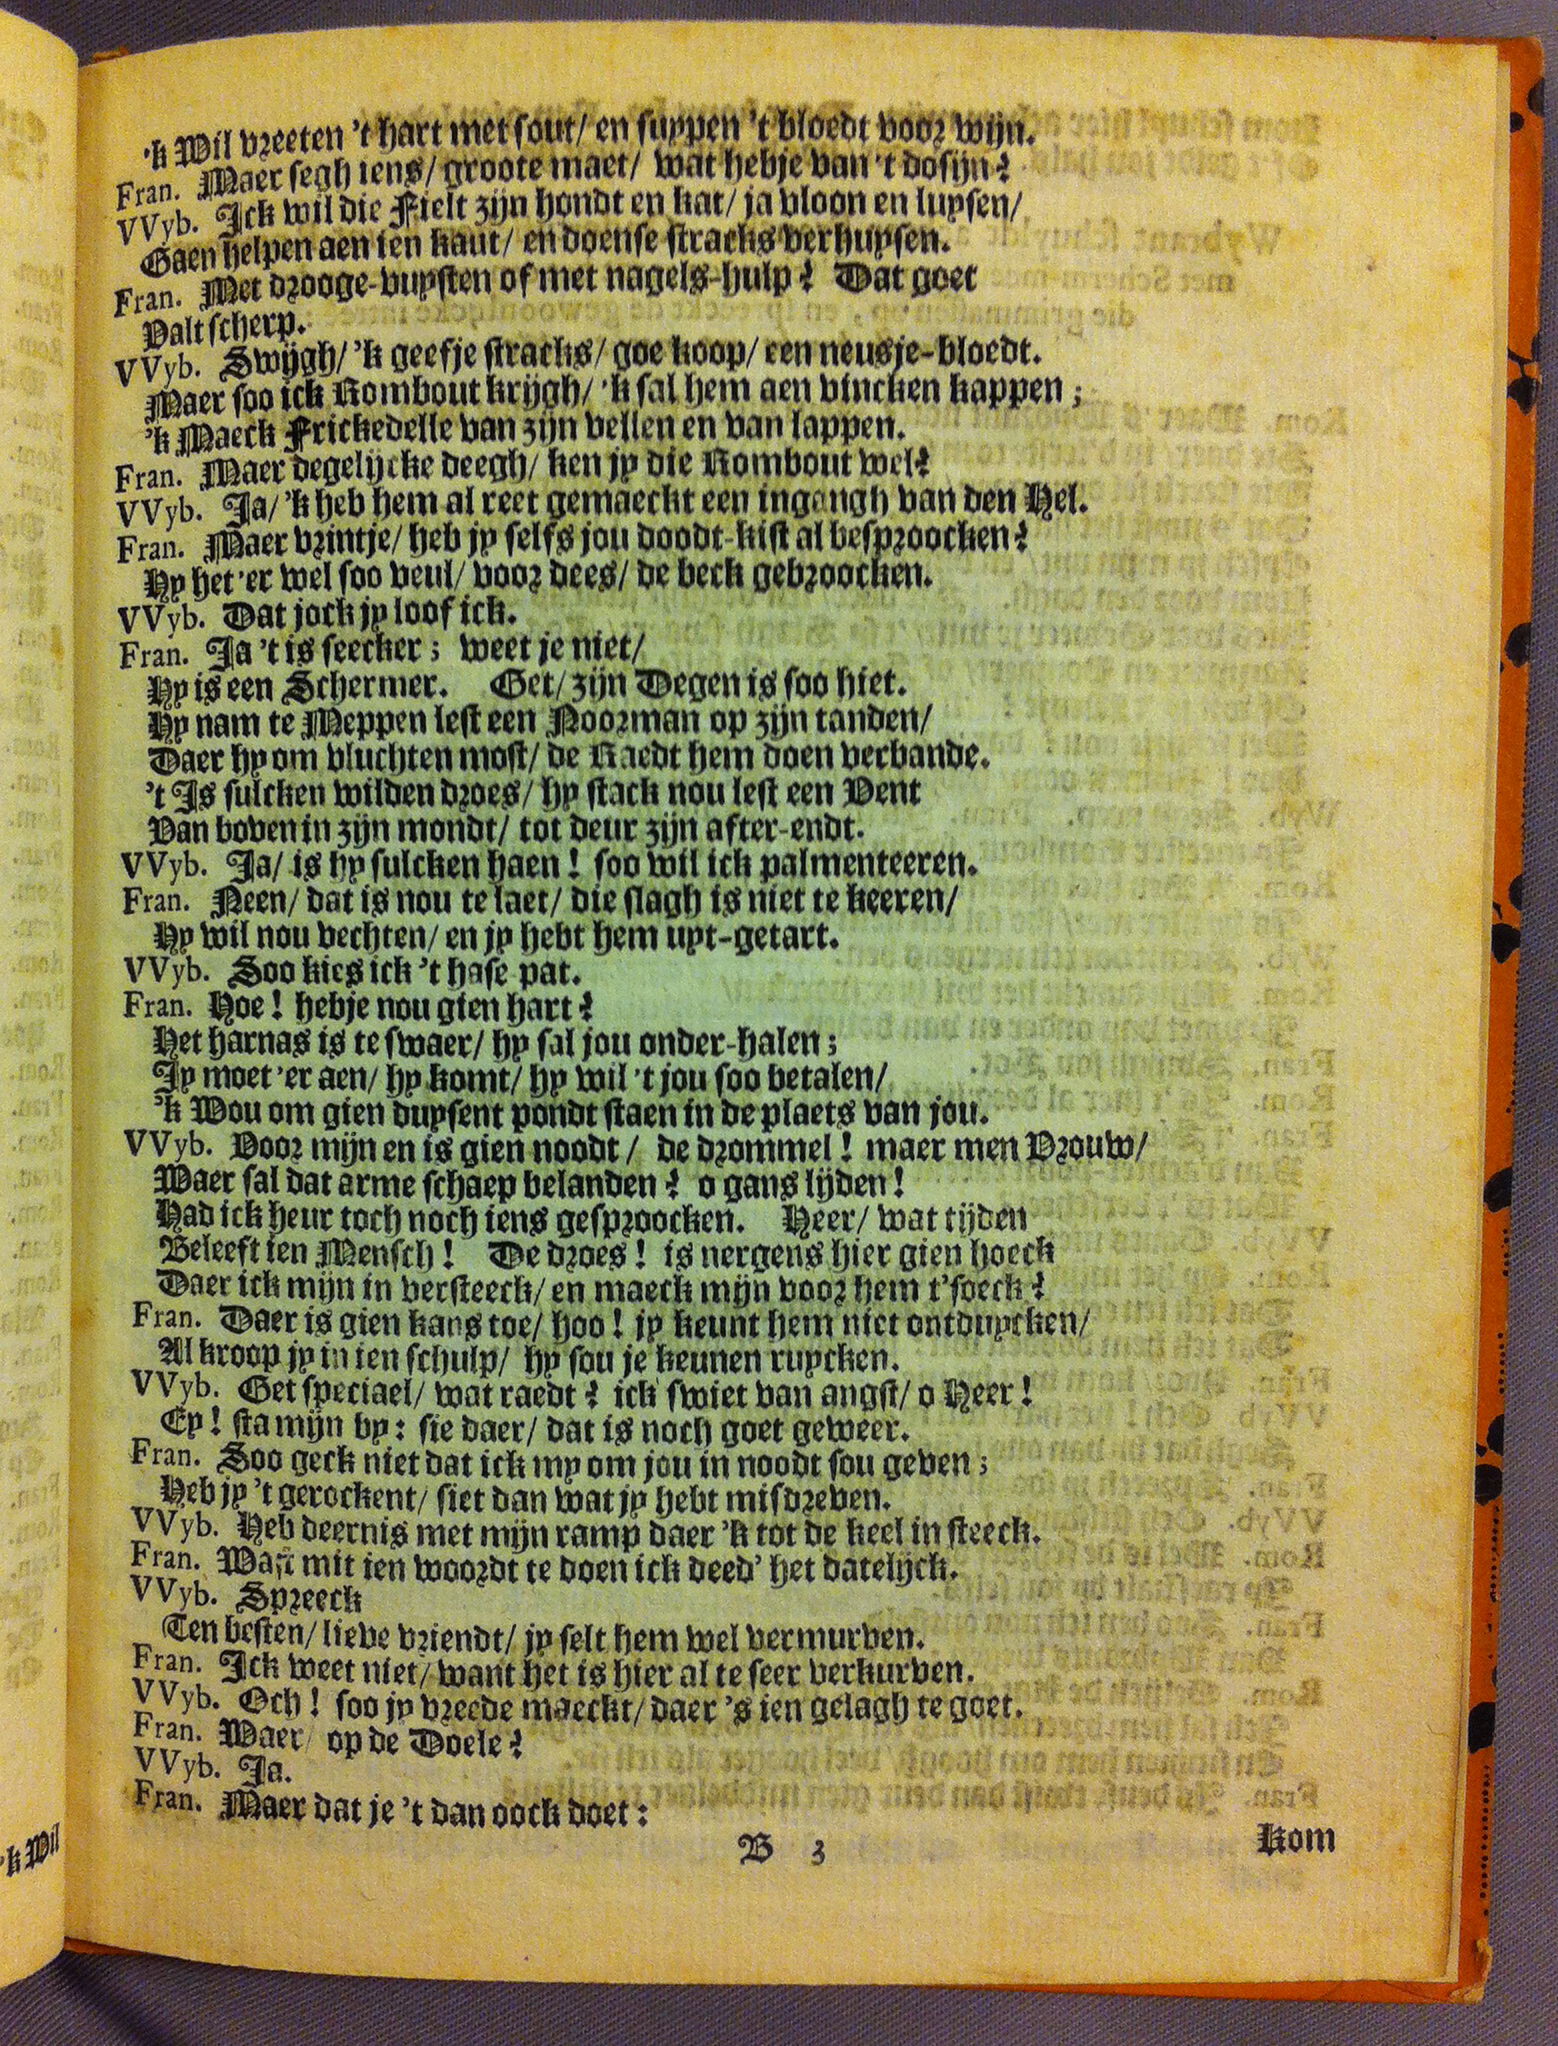 'k Wil vreeten 't hart met sout/ en suypen 't bloedt voor wijn.
Fran. Maer segh iens/ groote maet/ wat hebje van 't dosijn?
VVyb. Ick wil die Fielt zijn hondt en kat/ ja vloon en luysen/
Gaen helpen aen ien kant/ en doense stracks verhuysen.
Fran. Met drooge-vuysten of met nagels-hulp? Dat goet
Valt scherp.
VVyb. Swijgh/ 'k geefje stracks/ goe koop/ een neusje-bloedt.
Maer soo ick Rombout krijgh/ 'k sal hem aen vincken kappen;
'k Maeck Frickedelle van zijn vellen en van lappen.
Fran. Maer degelijcke deegh/ ken jy die Rombout wel?
VVyb. Ja/ 'k heb hem al reet gemaeckt een ingangh van den Hel.
Fran. Maer vrintje/ heb jy selfs jou doodt-kist al besproocken?
Hy het 'er wel soo veul/ voor dees/ de beck gebroocken.
VVyb. Dat jock jy loof ick.
Fran. Ja 't is seecker; weet je niet/
Hy is een Schermer. Get/ zijn Degen is soo hiet.
Hy nam te Meppen lest een Noorman op zijn tanden/
Daer hy om vluchten most/ de Raedt hem doen verbande.
't Is sulcken wilden droes/ hy stack nou lest een Vent
Van boven in zijn mondt/ tot deur zijn after-endt.
VVyb. Ja/ is hy sulcken haen! soo wil ick palmenteeren.
Fran. Neen/ dat is nou te laet/ die slagh is niet te keeren/
Hy wil nou vechten/ en jy hebt hem uyt-getart.
VVyb. Soo kies ick 't hase pat.
Fran. Hoe! hebje nou gien hart?
Het harnas is te swaer/ hy sal jou onder-halen;
Jy moet 'er aen/ hy komt/ hy wil 't jou soo betalen/
'k Wou om gien duysent pondt staen in de plaets van jou.
VVyb. Voor mijn en is gien noodt/ de drommel! maer men Vrouw/
Waer sal dat arme schaep belanden? o gans lijden!
Had ick heur toch noch iens gesproocken. Heer/ wat tijden
Beleeft ien Mensch! De droes! is nergens hier gien hoeck
Daer ick mijn in versteeck/ en maeck mijn voor hem t'soeck?
Fran. Daer is gien kans toe/ hoo! jy keunt hem niet ontduycken/
Al kroop jy in ien schulp/ hy sou je keunen ruycken.
VVyb. Get speciael/ wat raedt? ick swiet van angst/ o Heer!
Ey! sta mijn by: sie daer/ dat is noch goet geweer.
Fran. Soo geck niet dat ick my om jou in noodt sou geven;
Heb jy 't gerockent/ siet dan wat jy hebt misdreven.
VVyb. Heb deernis met mijn ramp daer 'k tot de keel in steeck.
Fran. Wast mit ien woordt te doen ick deed' het datelijck.
VVyb. Spreeck
Ten besten/ lieve vriendt/ jy selt hem wel vermurven.
Fran. Ick weet niet/ want het is hier al te seer verkurven.
VVyb. Och! soo jy vreede maeckt/ daer 's ien gelagh te goet.
Fran. Waer/ op de Doele?
VVyb. Ja.
Fran. Maer dat je 't dan oock doet:
B 3
kom
'k Wil